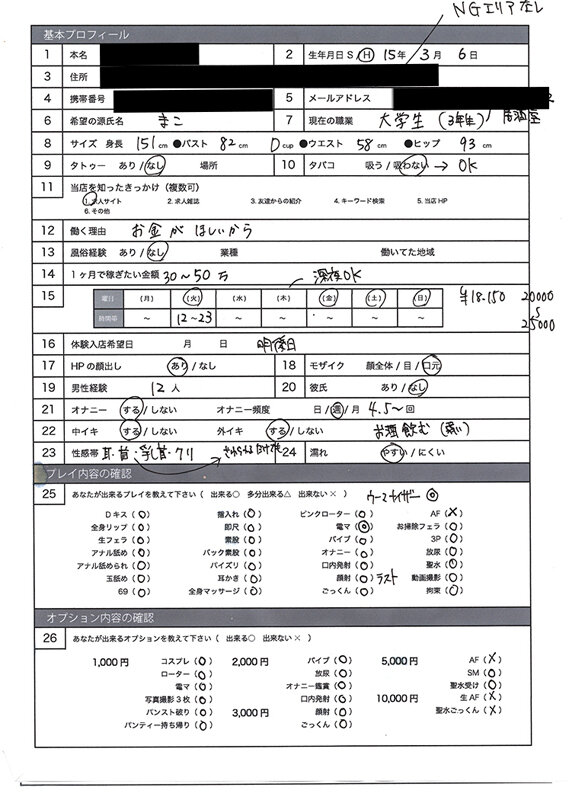 NGエリアなし
基本プロフィール
1 本名 2 生年月日 S / H 15年 3月 6日
3 住所
4 携帯番号 5 メールアドレス
6 希望の源氏名 まこ 7 現在の職業 大学生 (3年生) 居酒屋
8 サイズ 身長 151cm ●バスト 82cm Dcup ●ウエスト 58cm ●ヒップ 93cm
9 タトゥー あり / なし 場所 10 タバコ 吸う / 吸わない → OK
11 当店を知ったきっかけ（複数可）
1. 求人サイト 2. 求人雑誌 3. 友達からの紹介 4. キーワード検索 5. 当店HP
6. その他
12 働く理由 お金がほしいから
13 風俗経験 あり / なし 業種 働いてた地域
14 1ヶ月で稼ぎたい金額 30～50万 深夜OK
15 曜日 (月) (火) (水) (木) (金) (土) (日) ¥18.150 20000
時間帯 ～ 12～23 ～ ～ ～ ～ ～ 25000
16 体験入店希望日 月 日
17 HPの顔出し あり / なし 18 モザイク 顔全体 / 目 / 口元
19 男性経験 12人 20 彼氏 あり / なし
21 オナニー する / しない オナニー頻度 日 / 週 / 月 4.5～回
22 中イキ する / しない 外イキ する / しない お酒飲む(強い)
23 性感帯 耳・乳首・クリ 24 濡れ やすい / にくい
プレイ内容の確認
25 あなたが出来るプレイを教えて下さい（ 出来る○ 多分出来る△ 出来ない× ） ウーマナイザー ◎
Dキス (○) 指入れ (○) ピンクローター (○) AF (×)
全身リップ (○) 即尺 (○) 電マ (◎) お掃除フェラ (○)
生フェラ (○) 素股 (○) バイブ (○) 3P (○)
アナル舐め (○) バック素股 (○) オナニー (○) 放尿 (○)
アナル舐められ (○) パイズリ (○) 口内発射 (○) 聖水 (○)
玉舐め (○) 耳かき (○) 顔射 (○) ラスト 動画撮影 (○)
69 (○) 全身マッサージ (○) ごっくん (○) 拘束 (○)
オプション内容の確認
26 あなたが出来るオプションを教えて下さい（ 出来る○ 出来ない× ）
1,000円 コスプレ (○) 2,000円 バイブ (○) 5,000円 AF (×)
ローター (○) 放尿 (○) SM (○)
電マ (○) オナニー鑑賞 (○) 聖水受け (○)
写真撮影3枚 (○) 口内発射 (○) 10,000円 生AF (×)
パンスト破り (○) 3,000円 顔射 (○) 聖水ごっくん (×)
パンティー持ち帰り (○) ごっくん (○)